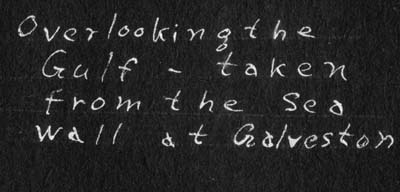 Overlooking the
Gulf - taken
from the Sea
wall at Galveston